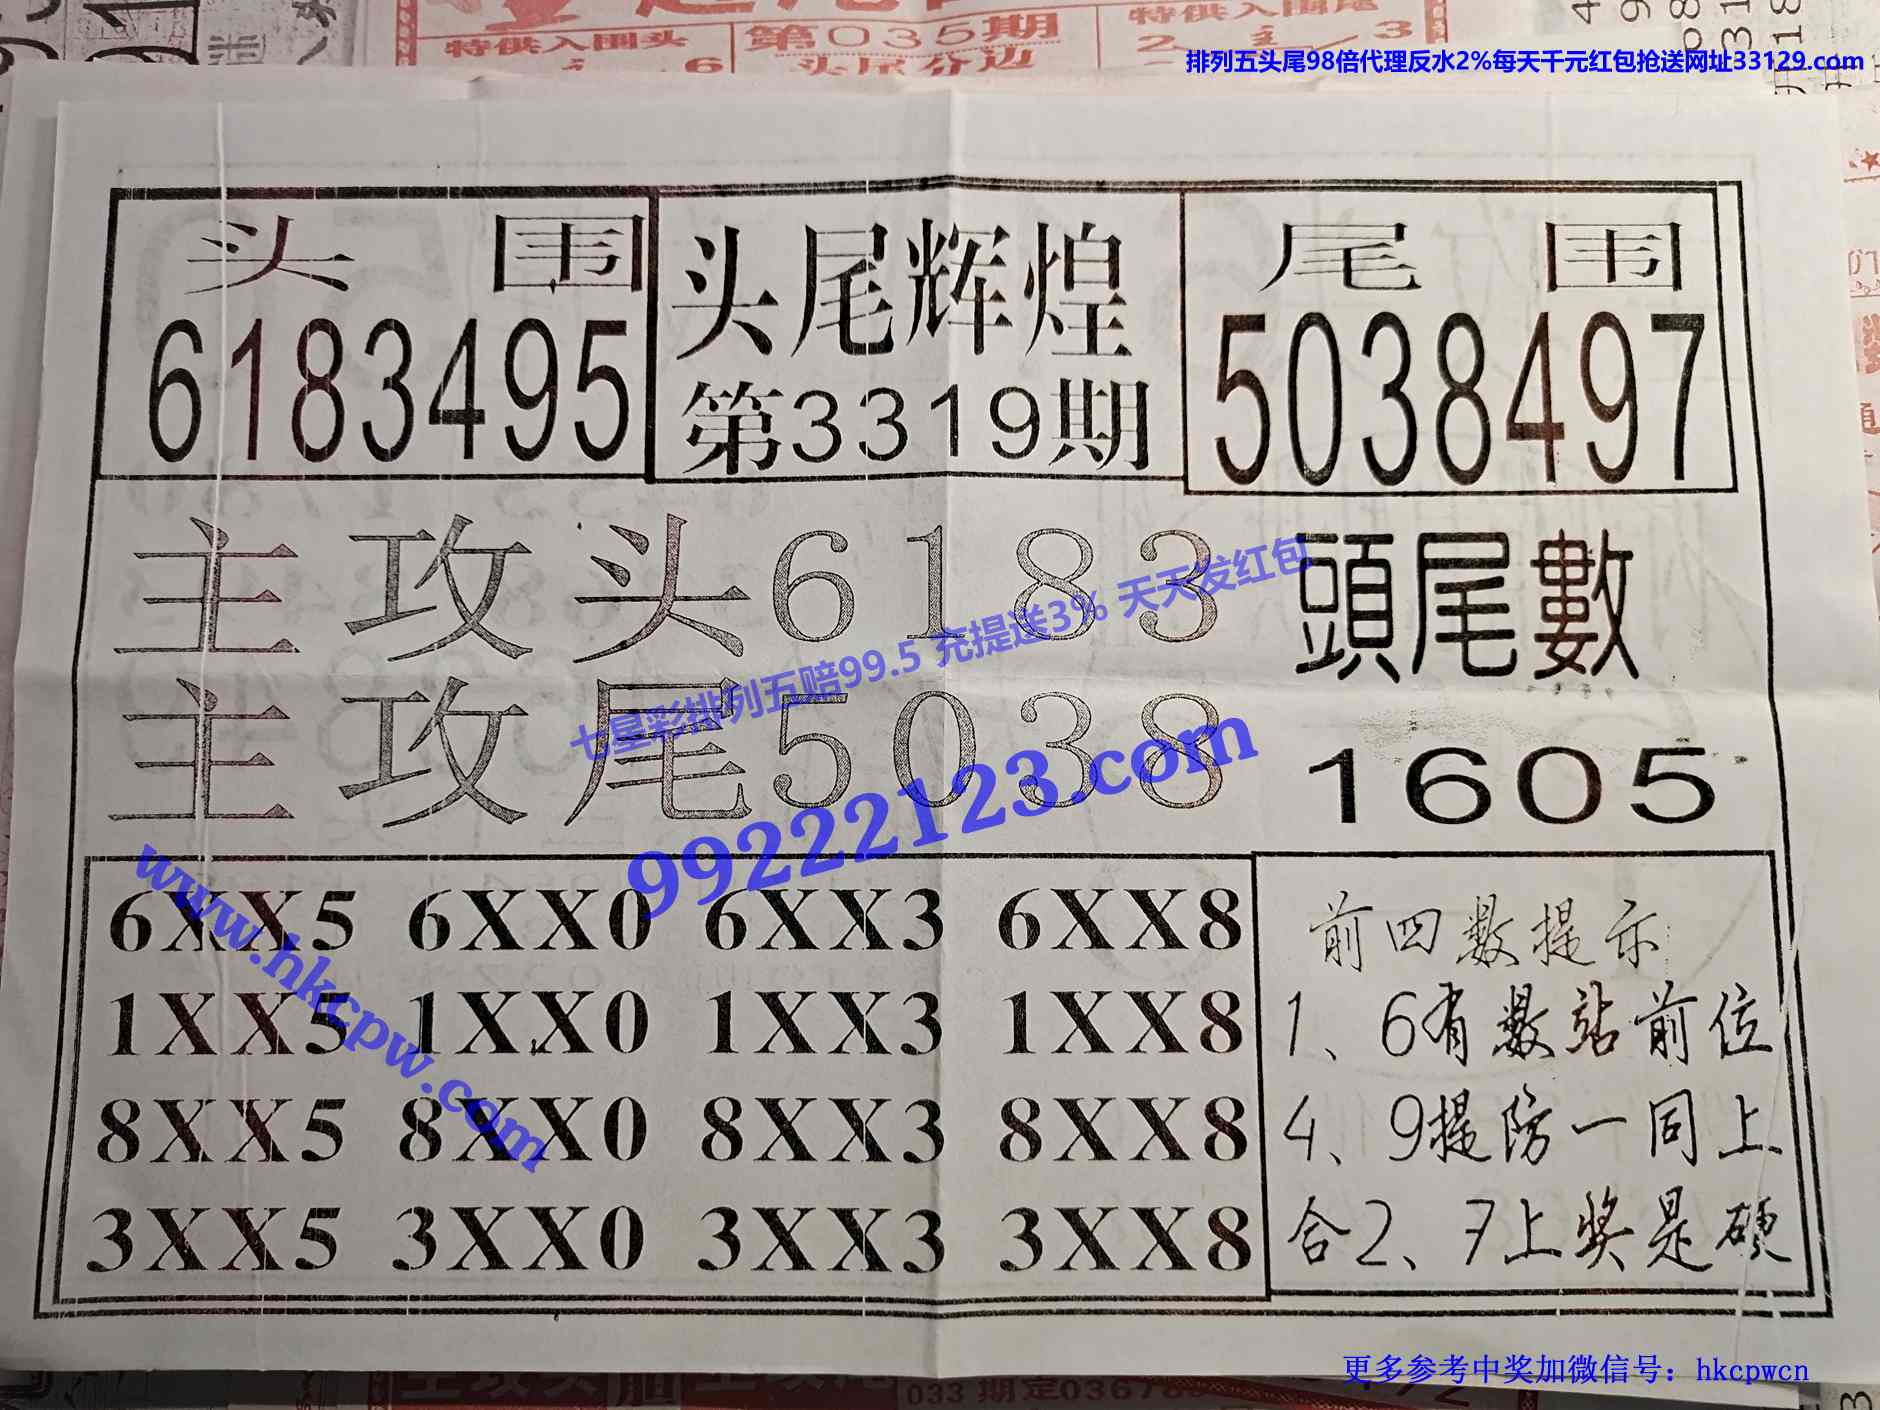 特供入围头
第035期
特供入围尾
头尾分边
排列五头尾98倍代理反水2%每天千元红包抢送网址33129.com
头 围
6183495
头尾辉煌
第3319期
尾 围
5038497
主攻头6183
主攻尾5038
頭尾數
1605
七星彩排列五赔99.5 充提送3% 天天发红包
99222123.com
www.hkcpw.com
6XX5 6XX0 6XX3 6XX8
1XX5 1XX0 1XX3 1XX8
8XX5 8XX0 8XX3 8XX8
3XX5 3XX0 3XX3 3XX8
前四数提示
1、6有数站前位
4、9提防一同上
合2、7上奖是硬
更多参考中奖加微信号：hkcpwcn